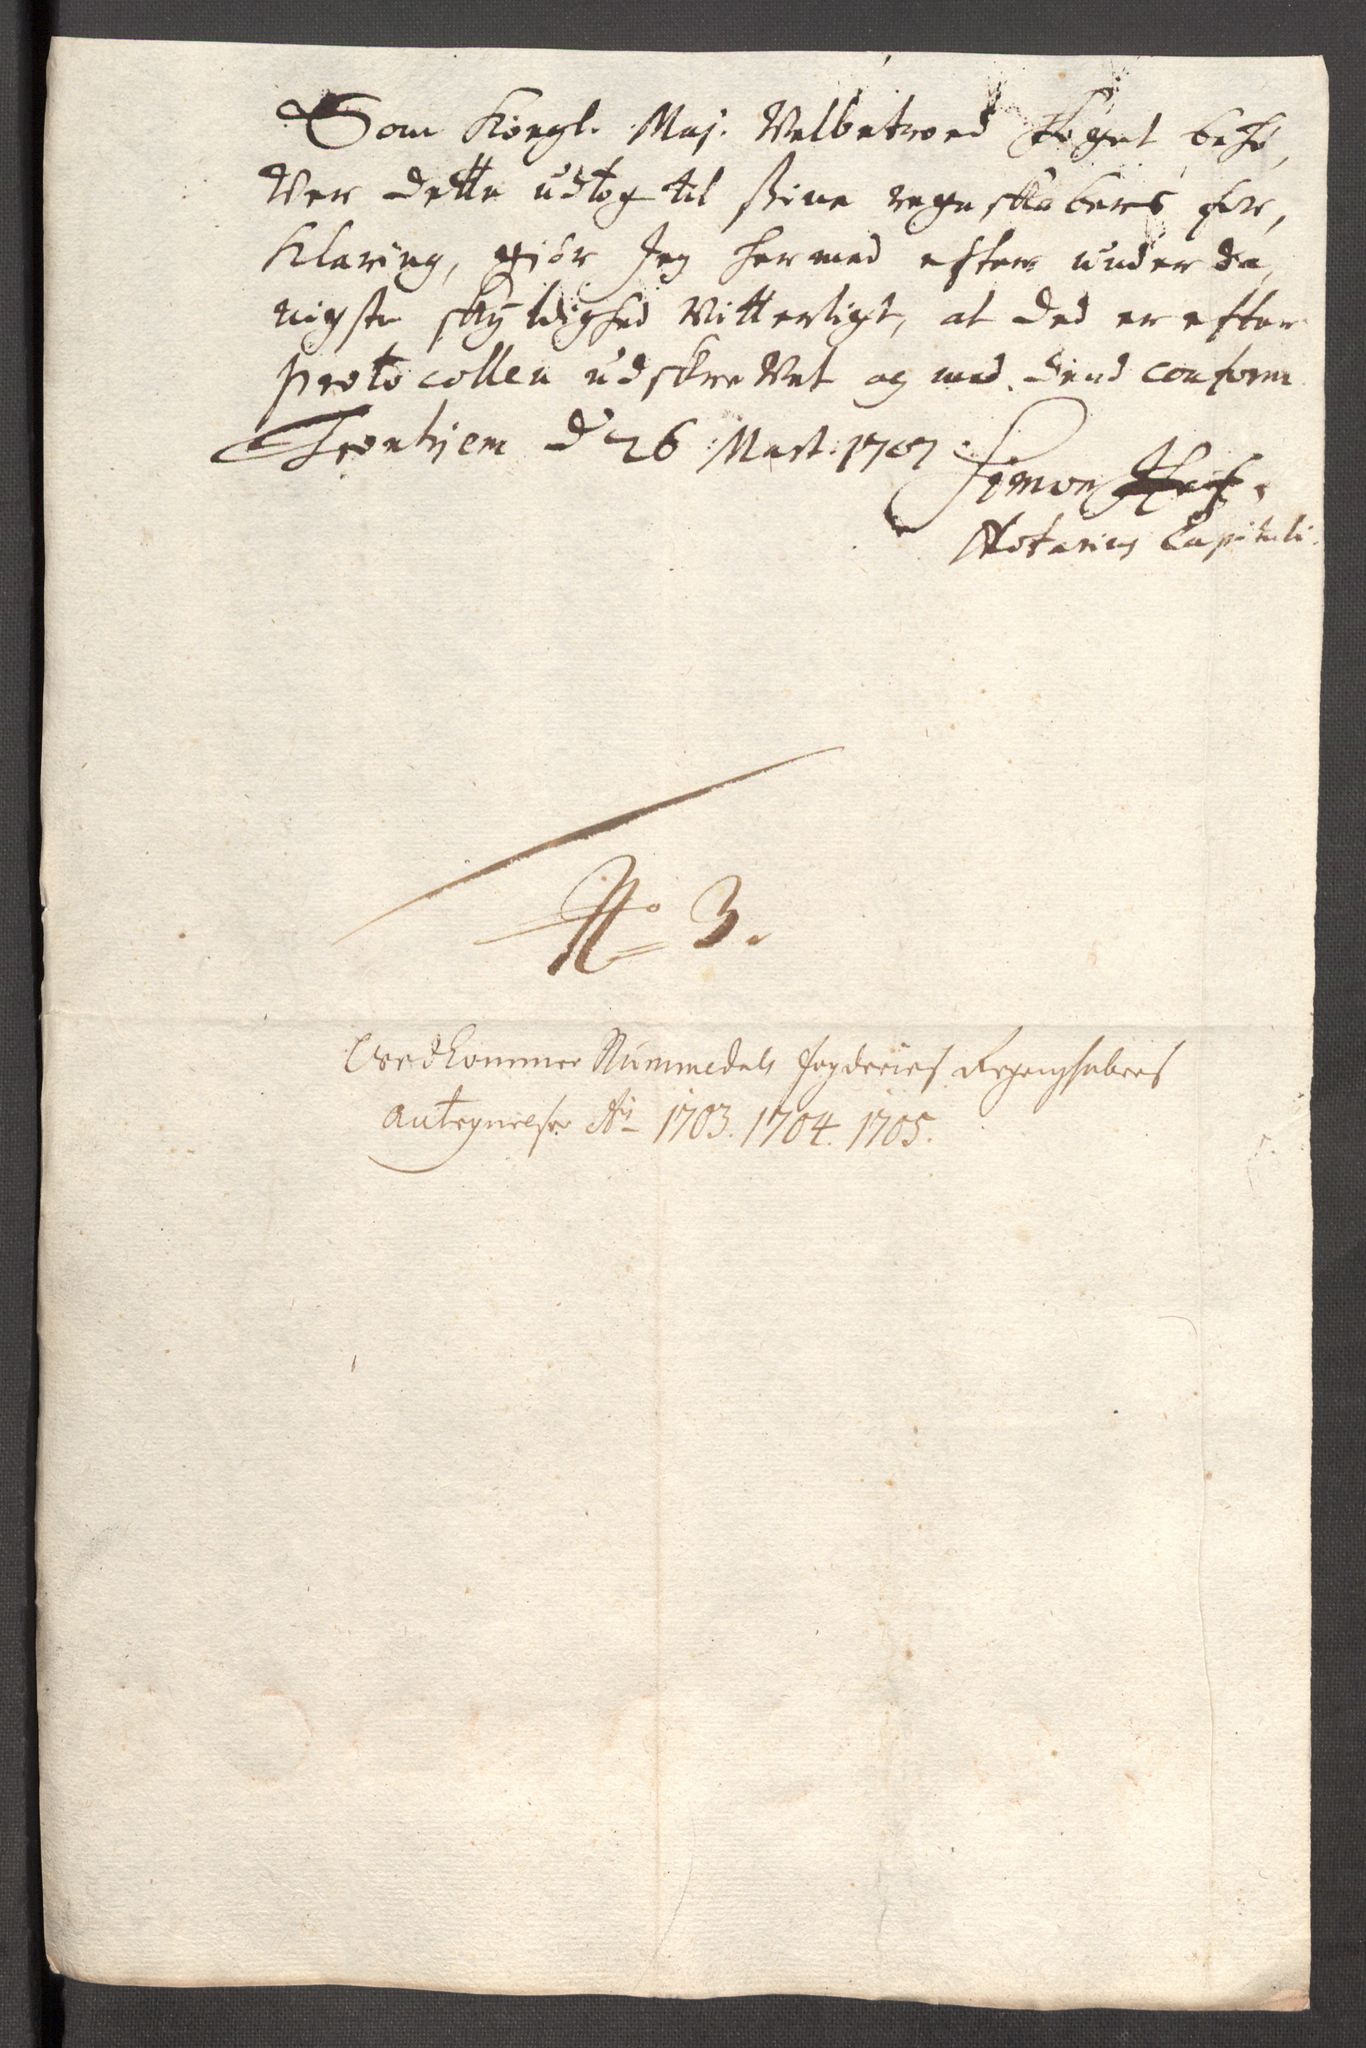 Som Kongl. Maj. Velbetroed foget behö,
Ver dette udtog til sine regnskabers for,
Klaring, giör Jeg hermed efter underda,
nigste skÿldighed Vitterligt, at ded er efter
protocollen udskrevet og med dend conform
Tronhjem d 26 Mart. 1707
Simon
Notarius Capituli.
No 3.
Vedkommer Nummedals fogderies Regenschabers
Antegnelser Ao 1703. 1704. 1705.